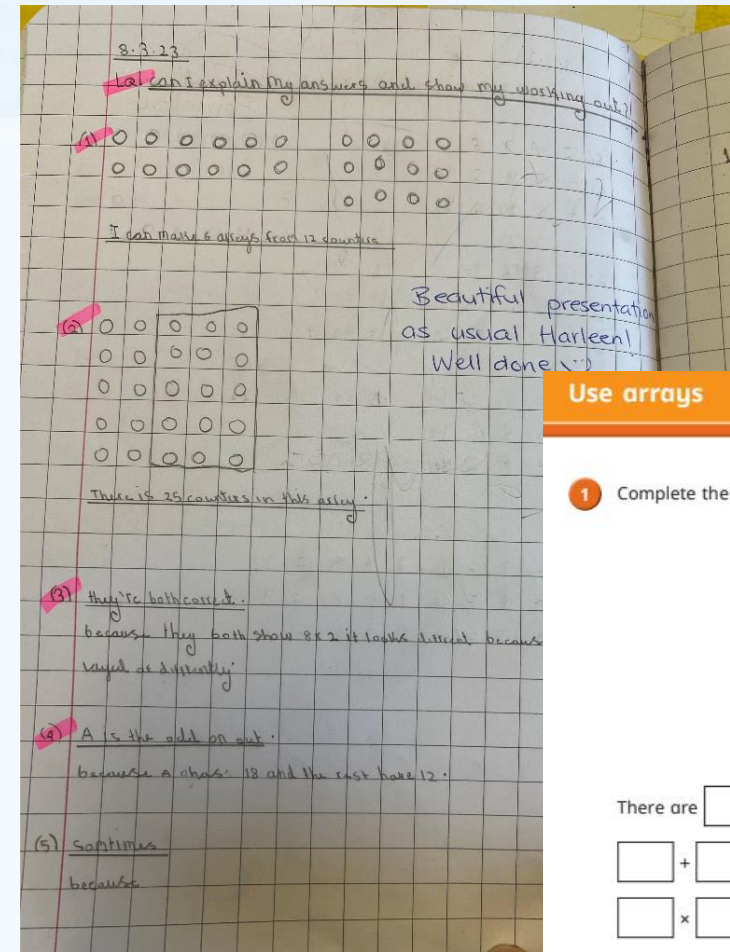 8.3.23
LQ! Can I explain my answers and show my working out?
(1)
I can make 6 arrays from 12 counters
Beautiful presentation
as usual Harleen!
Well done
(2)
There is 25 counters in this array.
(3) they're both correct.
because they both show 8x2 it looks different becaus
layed differently.
(4) A is the odd on out.
because A ahas 18 and the rest have 12.
(5) Somtimes
because
Use arrays
1 Complete the
There are
+
×